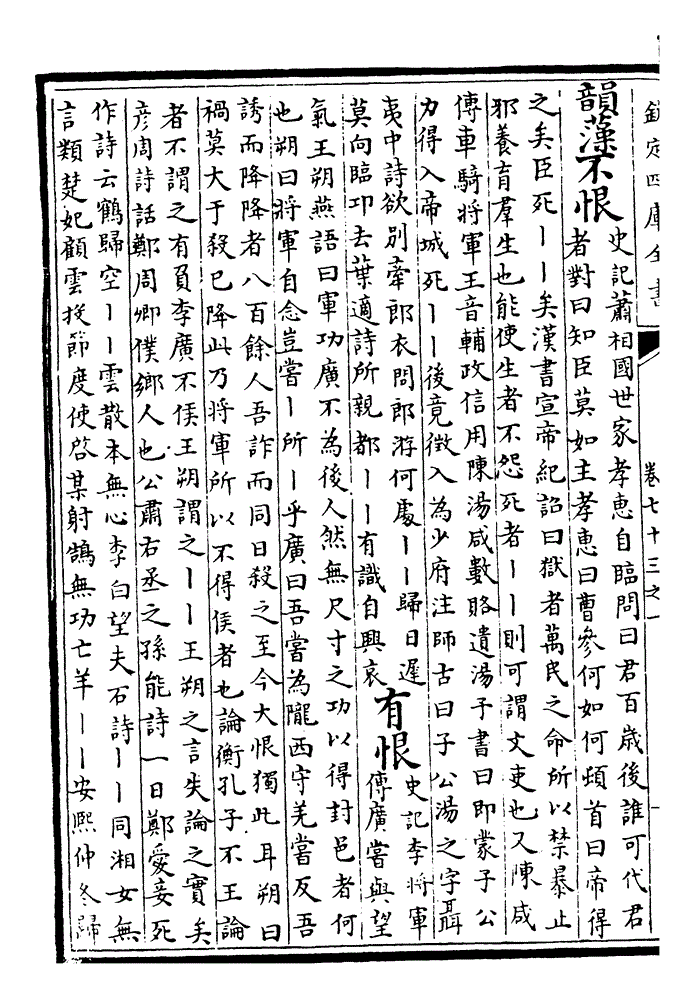 欽定四庫全書
卷七十三之一
韻藻不恨
史記蕭相國世家孝惠自臨問曰君百歲後誰可代君
者對曰知臣莫如主孝惠曰曹參何如何頓首曰帝得
之矣臣死丨丨矣漢書宣帝紀詔曰獄者萬民之命所以禁暴止
邪養育羣生也能使生者不怨死者丨丨則可謂文吏也又陳咸
傳車騎將軍王音輔政信用陳湯咸數賂遺湯予書曰即蒙子公
力得入帝城死丨丨後竟徵入為少府注師古曰子公湯之字聶
夷中詩欲別牽郎衣問郎游何處丨丨歸日遲
莫向臨邛去葉適詩所親都丨丨有識自興哀
有恨
史記李將軍
傳廣嘗與望
氣王朔燕語曰軍功廣不為後人然無尺寸之功以得封邑者何
也朔曰將軍自念豈嘗丨所丨乎廣曰吾嘗為隴西守羌嘗反吾
誘而降降者八百餘人吾詐而同日殺之至今大恨獨此耳朔曰
禍莫大于殺已降此乃將軍所以不得侯者也論衡孔子不王論
者不謂之有負李廣不侯王朔謂之丨丨王朔之言失論之實矣
彥周詩話鄭周卿僕鄉人也公肅右丞之孫能詩一日鄭愛妾死
作詩云鶴歸空丨丨雲散本無心李白望夫石詩丨丨同湘女無
言類楚妃顧雲投節度使啓某射鵠無功亡羊丨丨安熙仲冬歸